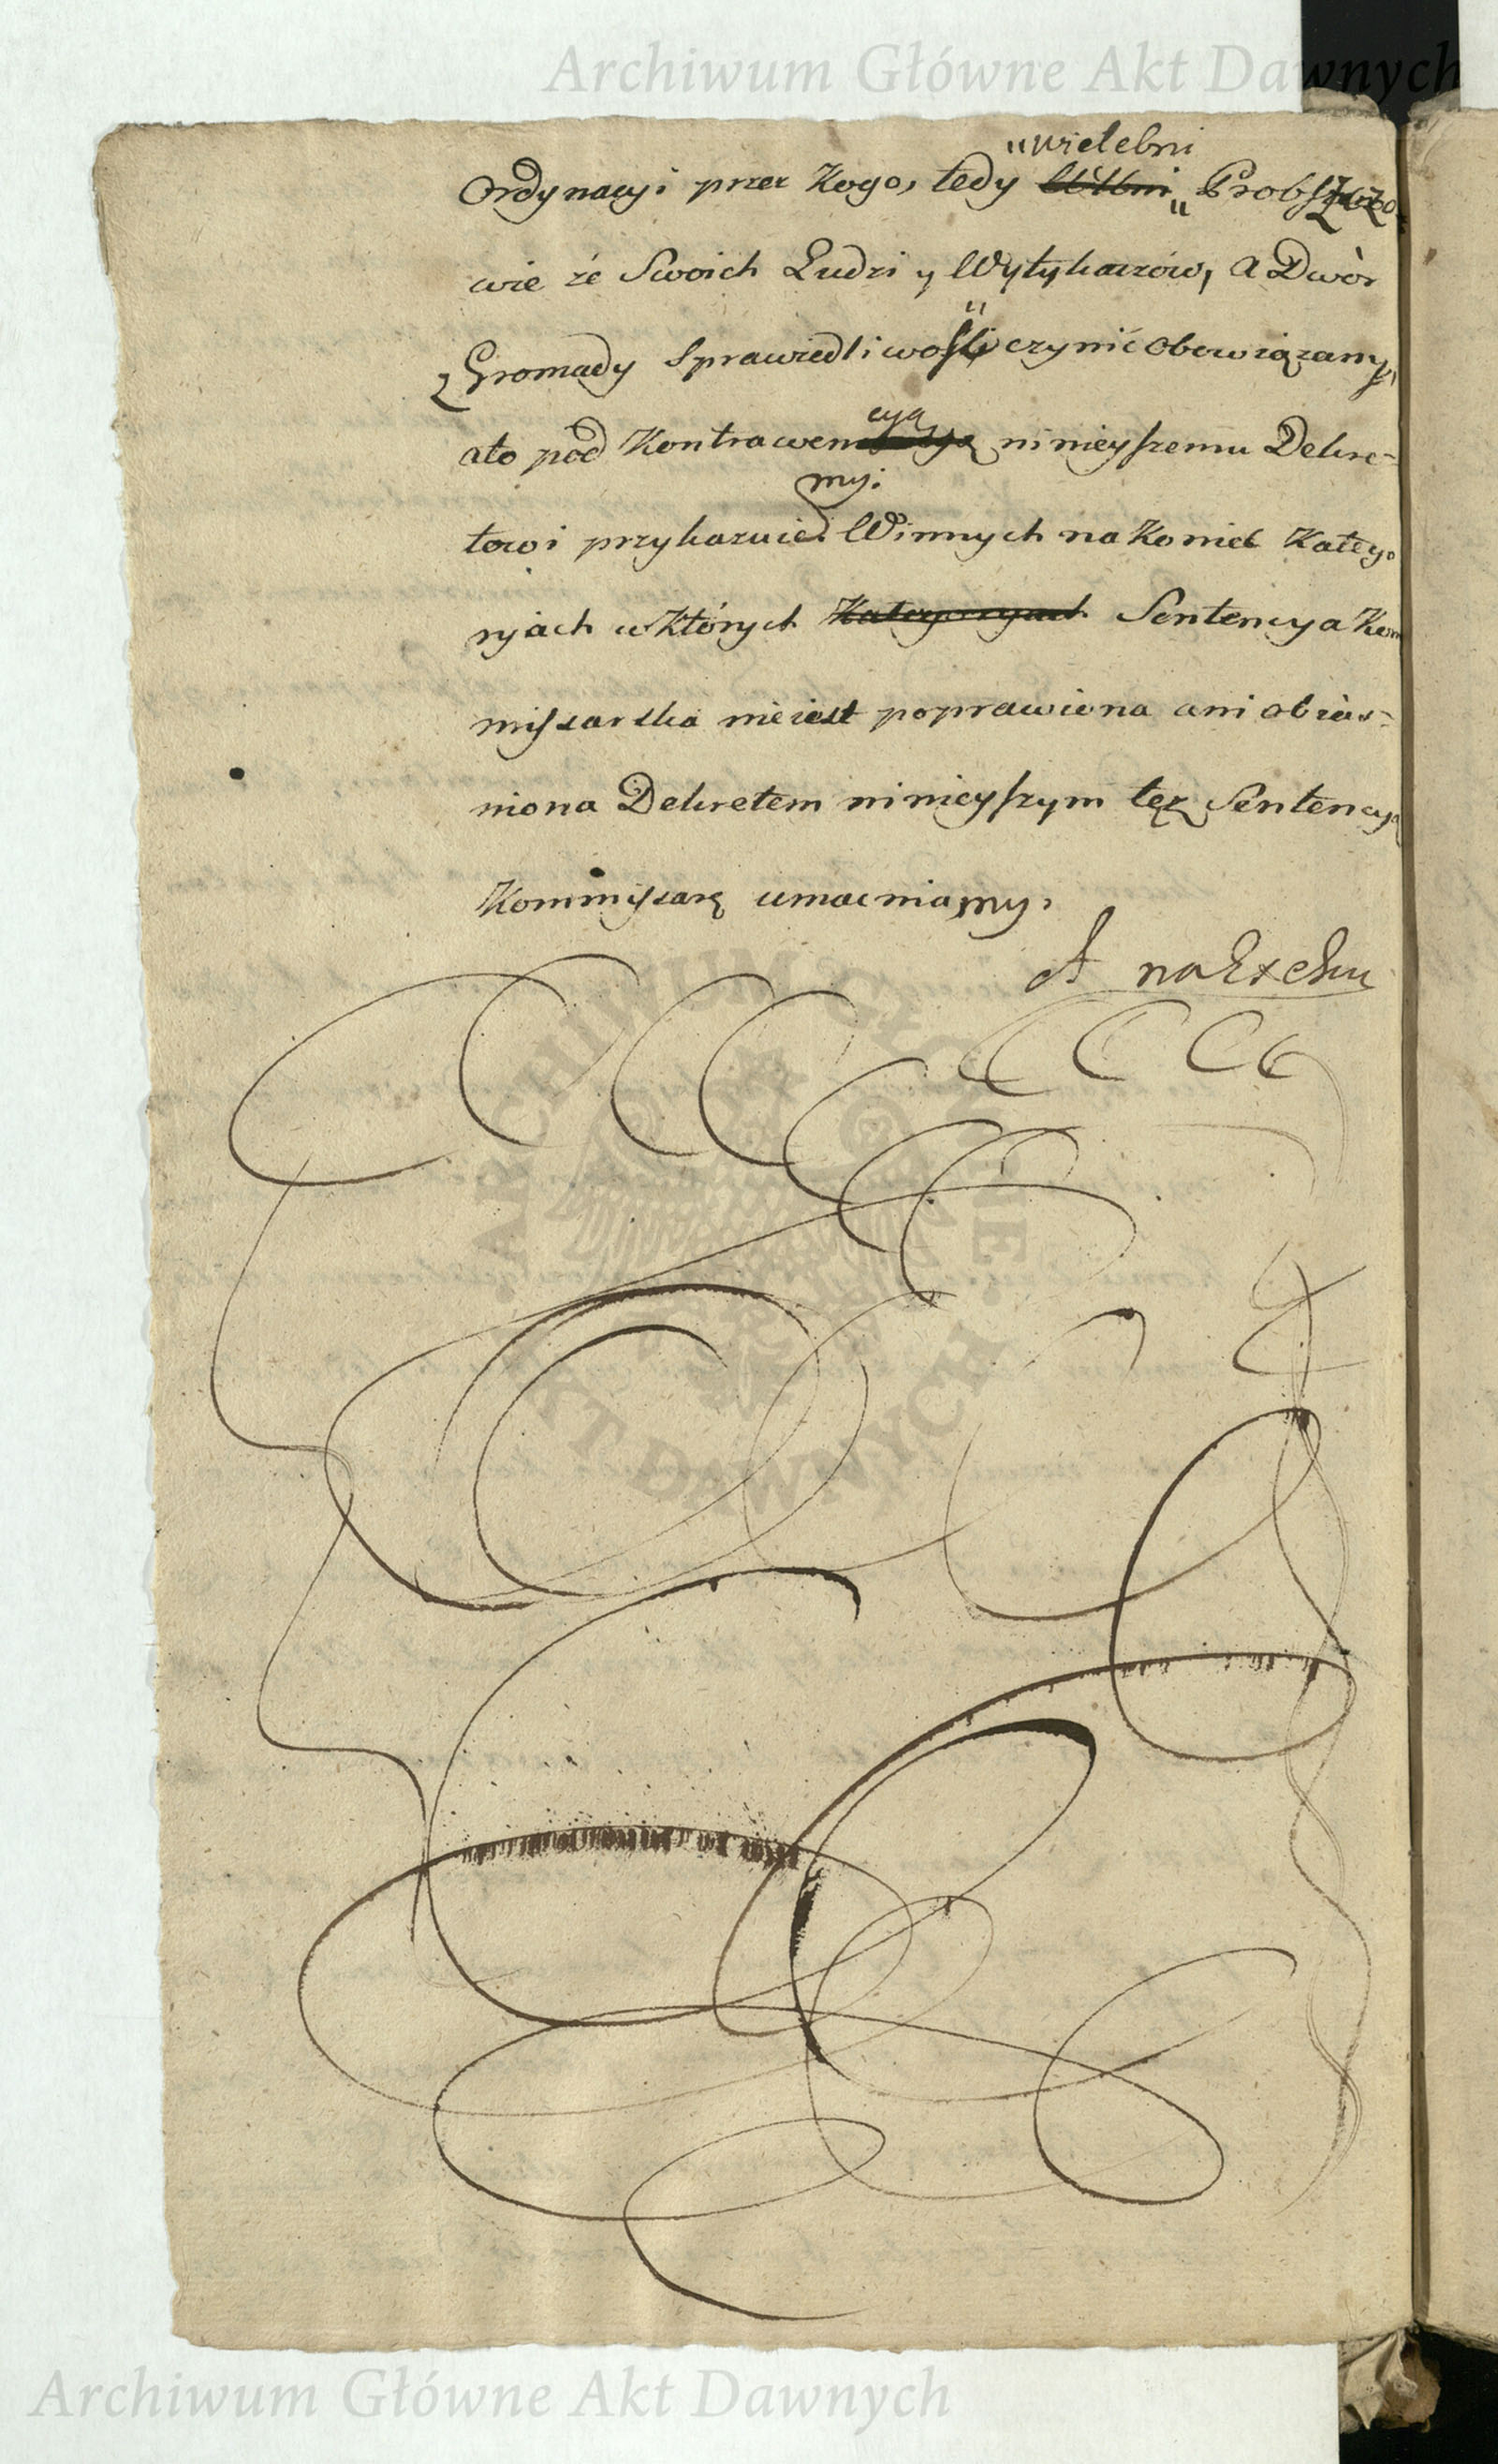 Archiwum Główne Akt Dawnych
"wielebni
Ordynacyi przez Kogo, tedy "Probszczo-
wie ze Swoich Ludzi y Wytykaczów, a Dwór
z Gromady Sprawiedliwość czynić obowiązany,
cyą
ato pod Kontrawen ninieyszemu Dekre-
my:
towi przykazuie Winnych na Koniec Katego
ryach w których Sentencya Kom
missarska nie iest poprawiona ani obias-
niona Dekretem ninieyszym tęż Sentencyą
Kommissarę umacniamy.
A na Exeku
ARCHIWUM GŁÓWNE
AKT DAWNYCH
Archiwum Główne Akt Dawnych